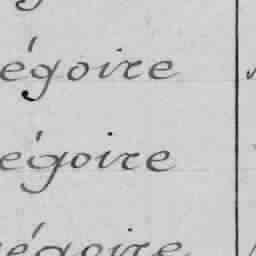 égoire
égoire
égoire